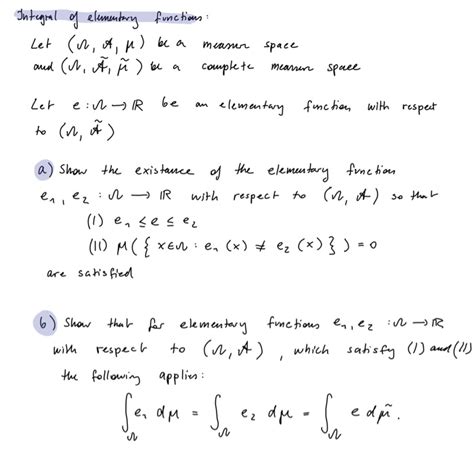 Integral of elementary functions:
Let (Ω, A, μ) be a measure space
and (Ω, Ã, μ̃) be a complete measure space
Let e : Ω → ℝ be an elementary function with respect
to (Ω, Ã)
a) Show the existance of the elementary function
e₁, e₂ : Ω → ℝ with respect to (Ω, A) so that
(I) e₁ ≤ e ≤ e₂
(II) μ({x∈Ω : e₁(x) ≠ e₂(x)}) = 0
are satisfied
b) Show that for elementary functions e₁, e₂ : Ω → ℝ
with respect to (Ω, A), which satisfy (I) and (II)
the following applies:
∫_Ω e₁ dμ = ∫_Ω e₂ dμ = ∫_Ω e dμ̃.